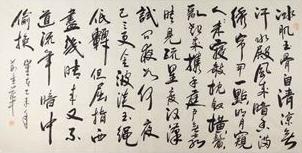 冰肌玉骨自清涼無
汗水殿風來暗香滿
繡簾開一點明月窺
人人未寢欹枕釵橫鬢
亂起來攜素手庭戶無聲
時見疏星度河漢
試問夜如何夜
已三更金波淡玉繩
低轉但屈指西
風幾時來又不
道流年暗中
偷換